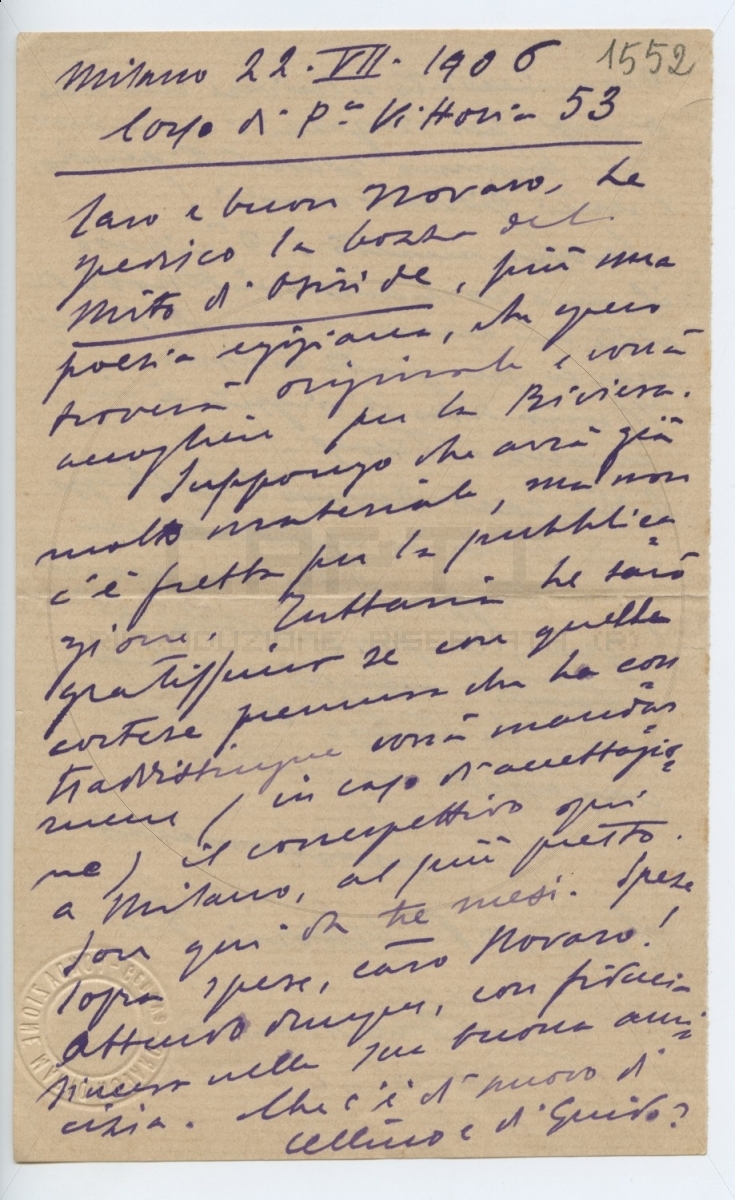 1552
Milano 22. VII. 1906
Corso di P.a Vittoria 53
Caro e buon Novaro, Le
spedisco la bozza del
Mito di Osiride, più una
poesia egiziana, che spero
troverà originale e vorrà
accogliere per la Riviera.
Suppongo che avrà già
molto materiale, ma non
c'è fretta per la pubblica=
zione. Tuttavia Le sarò
gratissimo se con quella
cortese premura che La con=
traddistingue vorrà mandar=
mene (in caso d'accettazio=
ne) il corrispettivo qui
a Milano, al più presto.
Son qui da tre mesi. Spese
sopra spese, caro Novaro!
Attendo dunque, con fiducia
sincera nella Sua buona ami=
cizia. Che c'è di nuovo di
Cellino e di Guido?
RIPRODUZIONE RISERVATA (R)